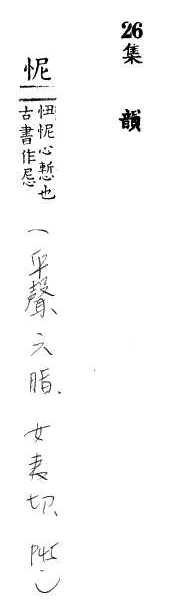 26
集韻
怩
忸怩心慙也
古書作𡰥
(平聲、六脂、女夷切、P45)